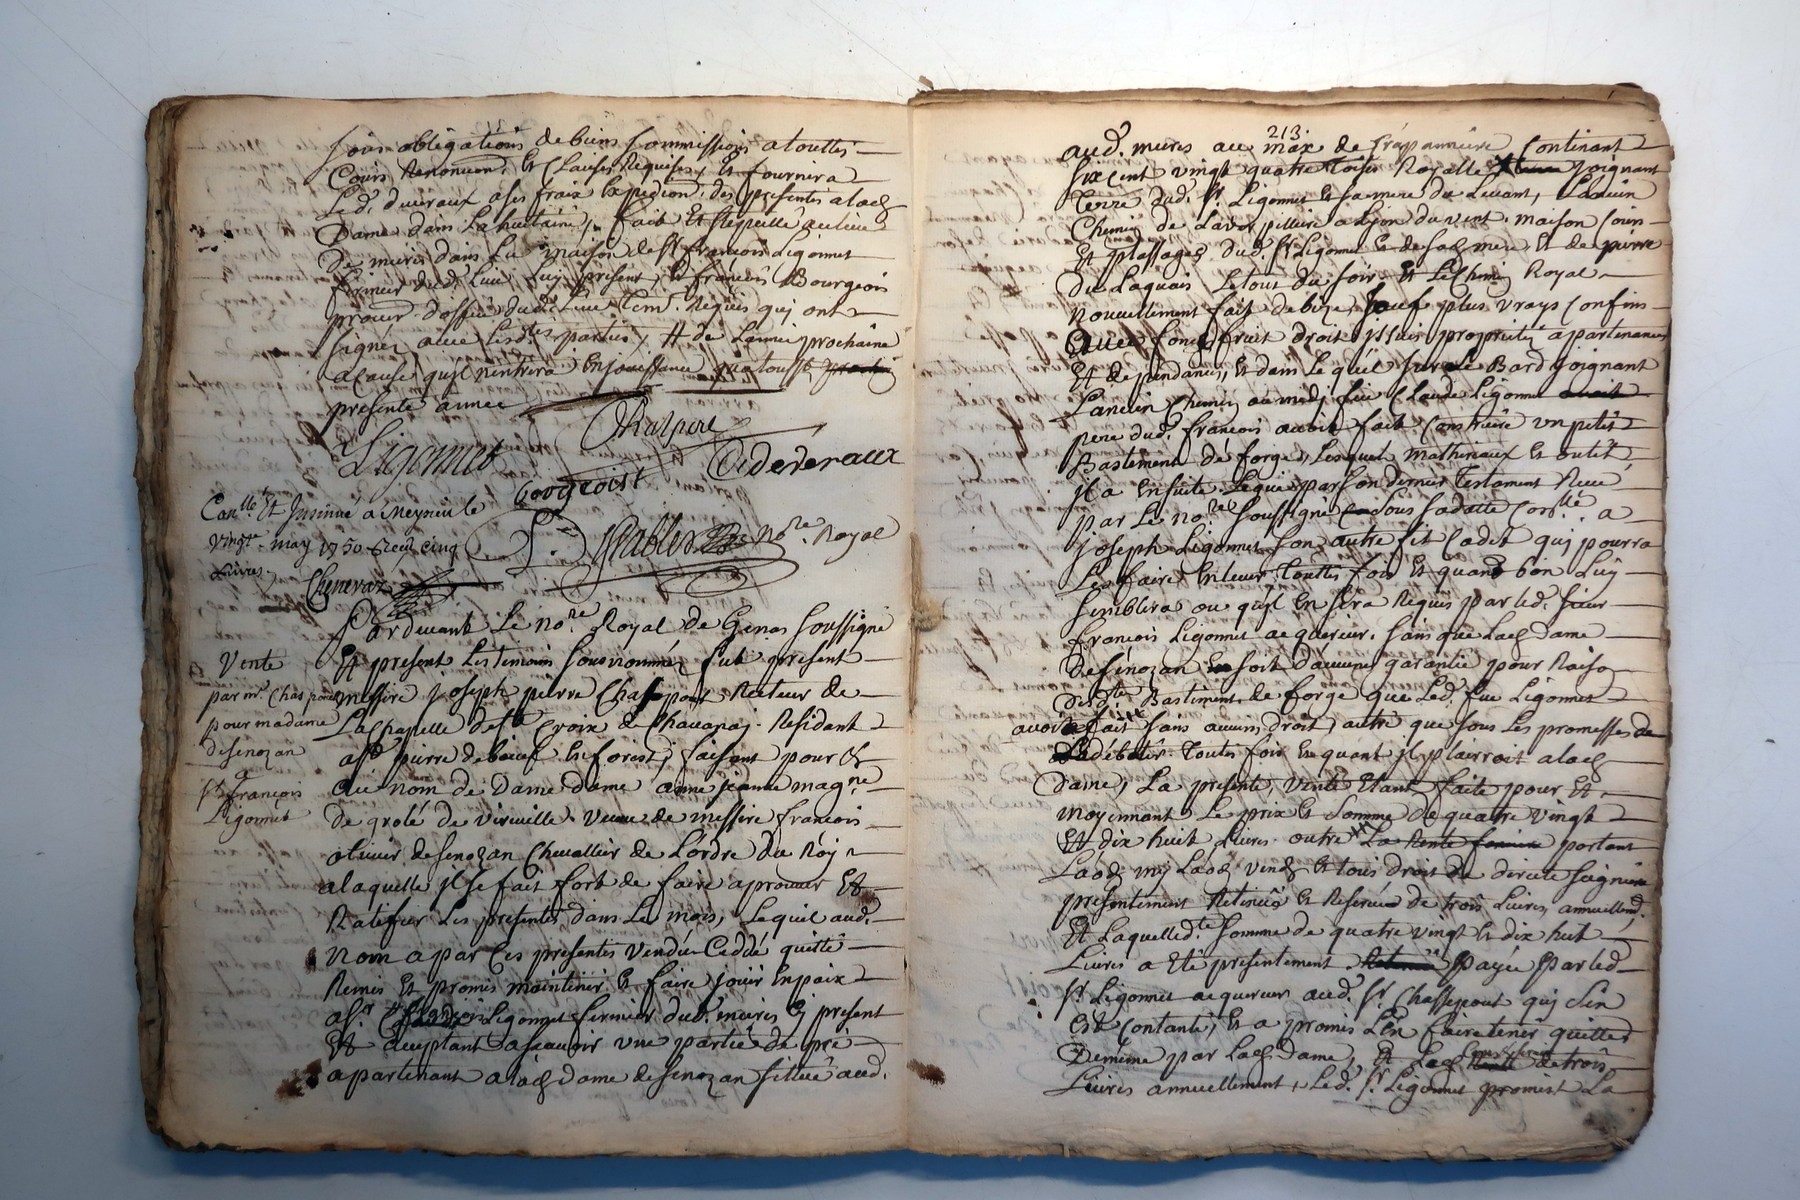 sous obligations de biens soumissions a touttes
Cours, Renoncion. Et Clauses Requises, Et fournira
Led. deveraux a ses frais Expedion. des presentes a lad.
Dame dans La huitaine, fait Et Recu au lieu
de meiris dans La maison de Sr françois Ligonnet
fermier dud. Lieu, Luy present, Et françois Bourgeois
procur. d'office dud. Lieu Tem. Requis qui ont
signéz avec Lesd. parties, # de Lannée prochaine
a cause qu'jl n'entrera En jouissance qu'a toussts
presente année
Ligonnet
Bourgeoist
Devereaux
Con.llé Et Jnsinué a Meyzieu le
vingt may 1750 Receu cinq
Livres.
Chenevaz
No.re Royal
Pardevant Le no.re Royal de Genas soussigné
Et present Les temoins sousnommés fut present
messire joseph pierre Chassepout Recteur de
La Chapelle de Ste Croix de Chavanay. Resident
a St pierre de boeuf En forest, faisant pour Et
au nom de Dame Dame anne jeanne magne
de grolé de virieville veuve de messire francois
olivier de senozan Chevallier de L'ordre du Roy
a laquelle jl se fait fort de faire aprouver Et
Ratiffier Les presentes dans Le mois, Lequel aud.
nom a par Ces presentes vendu Ceddé quitté
Remis Et promis maintenir Et faire jouir En paix
a Sr françois Ligonnet fermier dud. meiris Cy present
Et acceptant ascavoir une partie de pré
apartenant a lad. dame de senozan sittué aud.
Vente
par mr. Chassepout
pour madame
de senozan
a
Sr. François
Ligonnet
213.
aud. meiris au max de frappanniere Contenant
six cent vingt quatre toises Royalle joignant
Terre dud. Sr. Ligonnet Et sa mere du Levant, L'ancien
Chemin de Laverpilliere a Lyon du vent. maison Cours
Et passages dud. Sr Ligonnet Et de sad. mere Et de pierre
du Laquais Le tout du soir Et Le Chemin Royal
nouvellement fait de bize, sauf plus vrays Confins
Avec fonds fruit droit jssues propriétés apartenances
Et dependances, Et dans Lequel sur Le Bard joignant
L'ancien Chemin au midj feu Claude Ligonnet avoit
pere dud. françois avoit fait Construire un petit
Bastement de forge, Lesquel mathériaux Et outils
jl a Ensuite Legué par son dernier Testament Receu
par Le no.re soussigné sous sa datte Con.llé a
joseph Ligonnet son autre fil Cadet qui pourra
Les faire Enlever Touttes fois Et quand bon Luy
semblera ou qu'jl En sera Requis par led. sieur
françois Ligonnet acquereur. sans que Lad. dame
de senozan soit d'aucune garantie pour Raison
dud. Bastiment de forge que Led. feu Ligonnet
avoit fait sans aucuns droit, autre que sous Les promesses de
Ladébatir Toutes fois Et quant jl plairroit a lad.
dame, La presente vente Etant faite pour Et
moyennant Le prix Et somme de quatre vingt
Et dix huit Livres outre La Rente fonciere portant
Laod. mj Laod. vend. Et tous droit de directe seigneurie
presentement Retenue Et Reservée de trois Livres annuellem.
Et Laquelle d.te somme de quatre vingt Et dix huit
Livres a Eté presentement payée par led.
Sr. Ligonnet acquereur aud. Sr. Chassepout quj s'en
Est Contanté, Et a promis L'en faire tenir quitte
de meme par lad. dame, Et Lad. de trois
Livres annuellement, Led. Sr. Ligonnet promest La